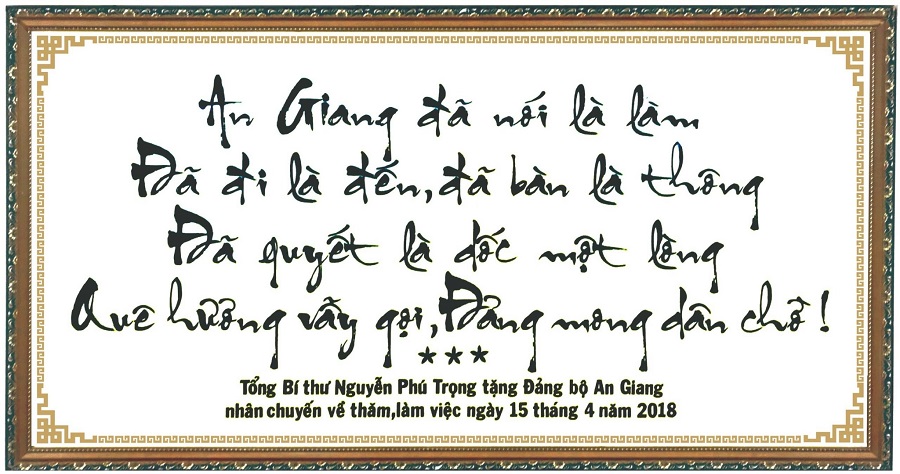 An Giang đã nói là làm
Đã đi là đến, đã bàn là thông
Đã quyết là dốc một lòng
Quê hương vẫy gọi, Đảng mong dân chờ!
***
Tổng Bí thư Nguyễn Phú Trọng tặng Đảng bộ An Giang
nhân chuyến về thăm, làm việc ngày 15 tháng 4 năm 2018